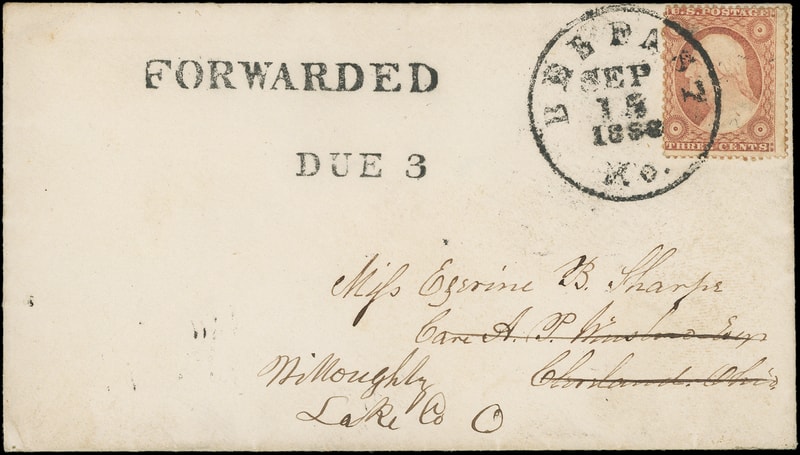 U.S. POSTAGE
FORWARDED
SEP
15
1858
Mo.
THREE CENTS
DUE 3
Miss Egerine B. Sharpe
Care A. P. Winslow Esqr
Willoughby Cleveland. Ohio
Lake Co O